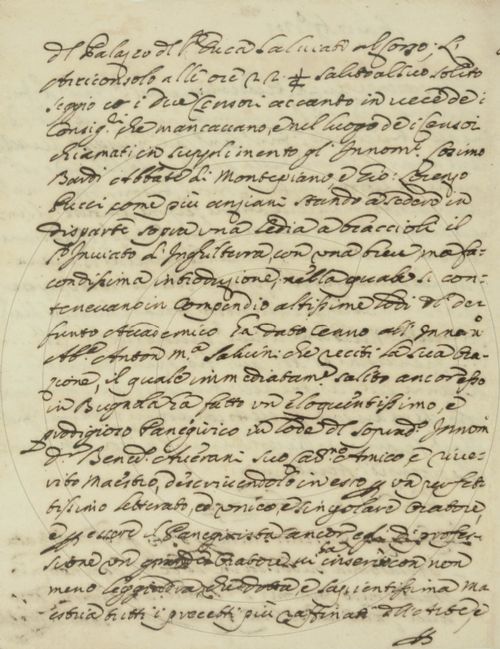 del Palazzo del Sr Duca Salviati al Corso; L'
Arciconsolo alle ore 22 ¼ salito al suo solito
seggio co i due Censori accanto in vece de i
Consigri che mancavano, e nel luogo de i Censori
chiamati in supplimento gl'Innomi Cosimo
Bardi Abbate di Montepiano, e Gio: Lorenzo
Pucci come più anziani stando a sedere in
disparte sopra una sedia a bracciole il
Sr Inviato di Inghilterra, con una breve, ma fa-
condissima introduzione, nella quale si con-
tenevano in compendio altissime lodi del de-
funto Accademico ha dato cenno all'Innomo
Abe Anton Ma Salvini che reciti la sua Ora-
zione, il quale immediatamte salito ancor esso
in Bugnola ha fatto un eloquentissimo, e
prodigioso Panegirico in lode del sopradо Innomo
Dr Benedo Averani suo Amico e rive-
rito Maestro, descrivendolo in esso un perfet-
tissimo letterato, ed unico, e singolare Oratore,
e essere il Panegirista ancor di profes-
sione un grande Oratore inserì con non
meno leggiadra, che dotta e sapientissima ma-
estria tutti i precetti più raffinati dell'Arte e